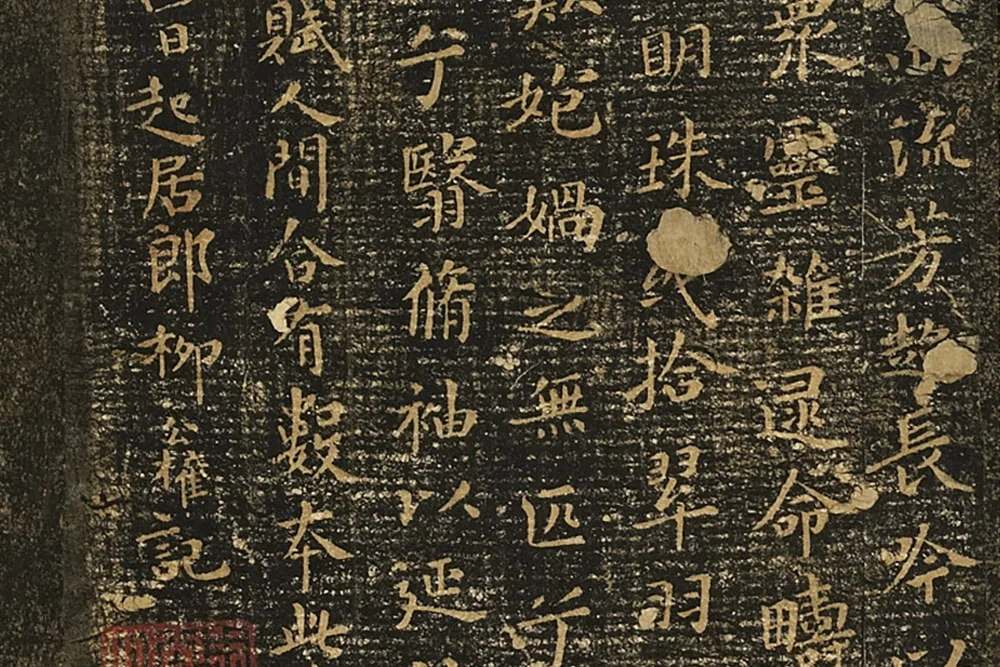 流芳超長吟以
眾靈雜遝命疇
明珠或拾翠羽
歎㚿媧之無匹兮
兮翳脩袖以延
賦人間合有數本此
日起居郎柳公權記